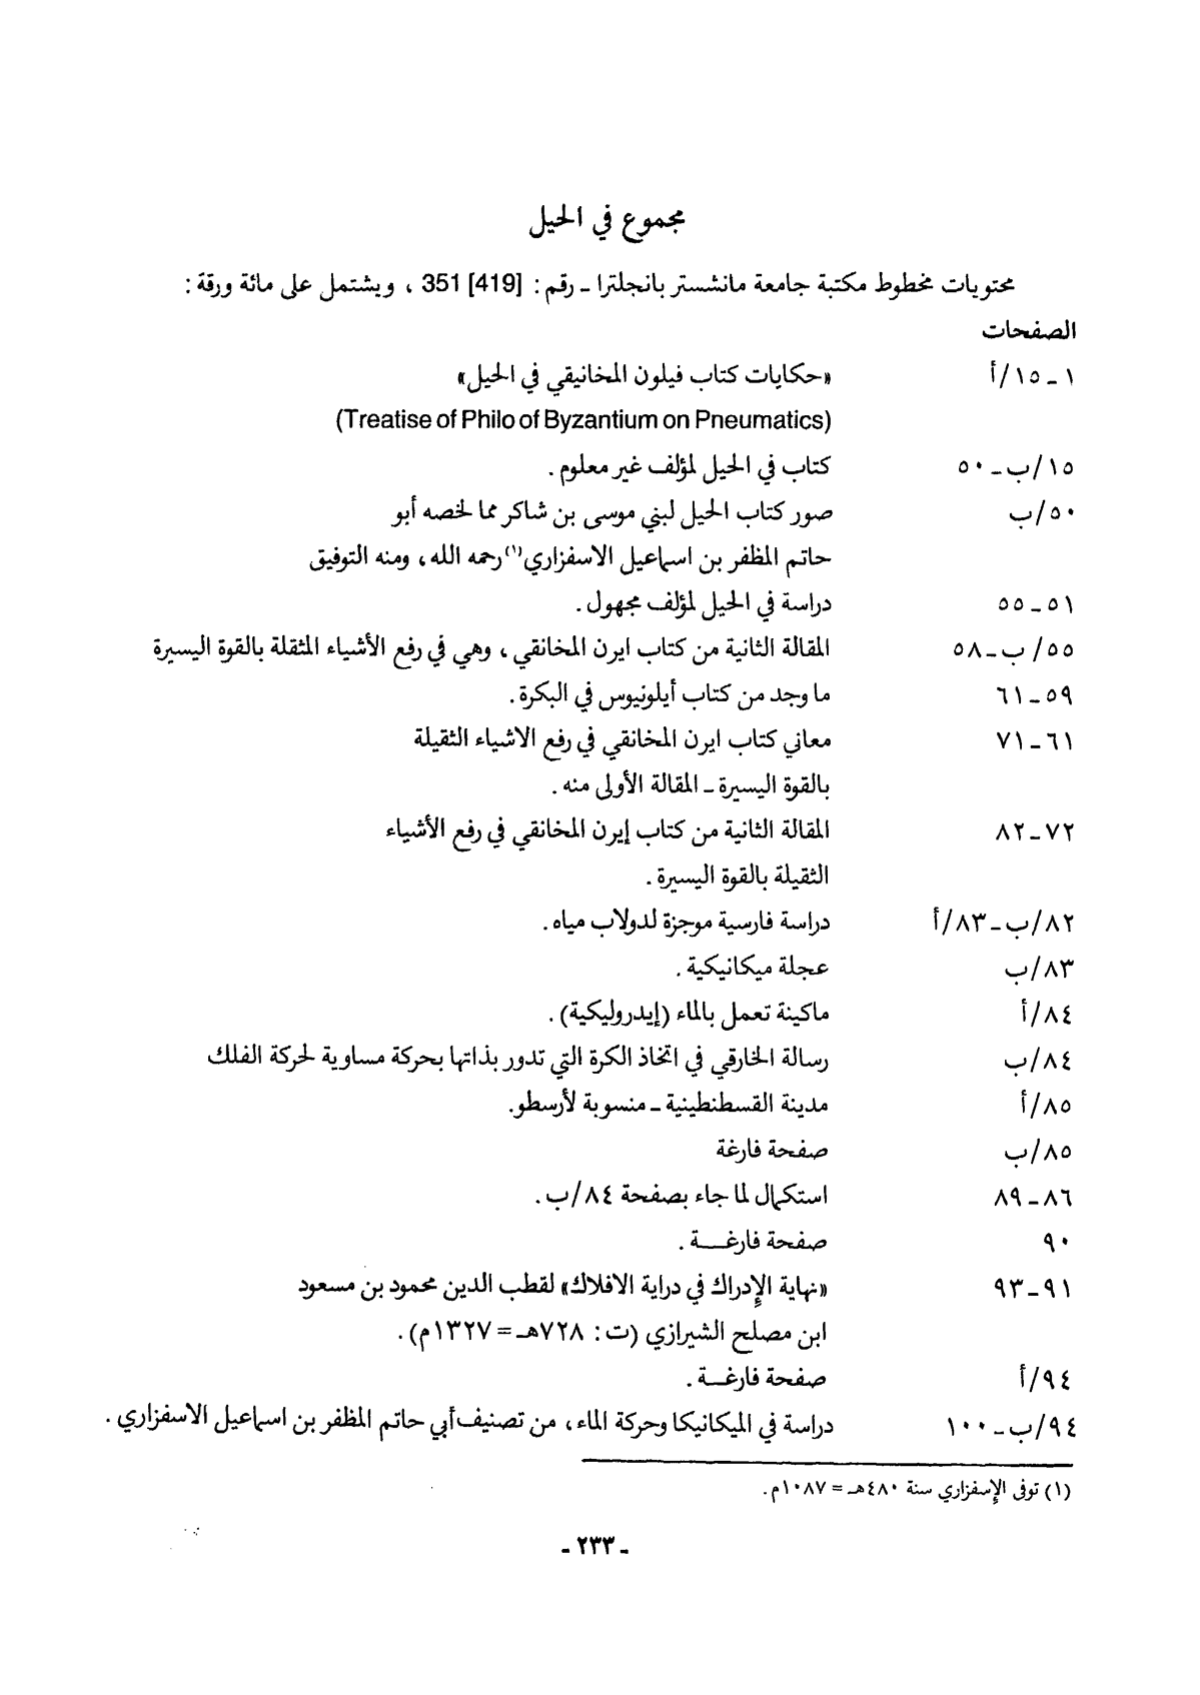 مجموع في الحيل
محتويات مخطوط مكتبة جامعة مانشستر بانجلترا ـ رقم : [419] 351 ، ويشتمل على مائة ورقة :
الصفحات
١ ـ ١٥/أ «حكايات كتاب فيلون المخانيقي في الحيل»
(Treatise of Philo of Byzantium on Pneumatics)
١٥/ب ـ ٥٠ كتاب في الحيل لمؤلف غير معلوم .
٥٠/ب صور كتاب الحيل لبني موسى بن شاكر مما لخصه أبو
حاتم المظفر بن اسماعيل الاسفزاري(١) رحمه الله ، ومنه التوفيق
٥١ ـ ٥٥ دراسة في الحيل لمؤلف مجهول .
٥٥/ب ـ ٥٨ المقالة الثانية من كتاب ايرن المخانقي ، وهي في رفع الأشياء المثقلة بالقوة اليسيرة
٥٩ ـ ٦١ ما وجد من كتاب أيلونيوس في البكرة .
٦١ ـ ٧١ معاني كتاب ايرن المخانقي في رفع الاشياء الثقيلة
بالقوة اليسيرة ـ المقالة الأولى منه .
٧٢ ـ ٨٢ المقالة الثانية من كتاب إيرن المخانقي في رفع الأشياء
الثقيلة بالقوة اليسيرة .
٨٢/ب ـ ٨٣/أ دراسة فارسية موجزة لدولاب مياه .
٨٣/ب عجلة ميكانيكية .
٨٤/أ ماكينة تعمل بالماء (إيدروليكية) .
٨٤/ب رسالة الخارقي في اتخاذ الكرة التي تدور بذاتها بحركة مساوية لحركة الفلك
٨٥/أ مدينة القسطنطينية ـ منسوبة لأرسطو.
٨٥/ب صفحة فارغة
٨٦ ـ ٨٩ استكمال لما جاء بصفحة ٨٤/ب .
٩٠ صفحة فارغـــة .
٩١ ـ ٩٣ «نهاية الإدراك في دراية الافلاك» لقطب الدين محمود بن مسعود
ابن مصلح الشيرازي (ت : ٧٢٨هـ = ١٣٢٧م) .
٩٤/أ صفحة فارغـــة .
٩٤/ب ـ ١٠٠ دراسة في الميكانيكا وحركة الماء ، من تصنيف أبي حاتم المظفر بن اسماعيل الاسفزاري .
(١) توفى الإسفزاري سنة ٤٨٠هـ = ١٠٨٧م .
ـ ٢٣٣ ـ